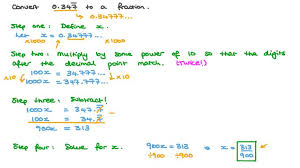 Convert 0.347̇ to a fraction.
↳ 0.34777...
Step one: Define x.
Let x = 0.34777...
×1000 ×1000
Step two: multiply by some power of 10 so that the digits
after the decimal point match. (Twice!)
100x = 34.777...
×10 ×10
1000x = 347.777...
Step three: Subtract!
1000x = 347.7̇
100x = 34.7̇ −
900x = 313
Step four: Solve for x. 900x = 313 ⇒ x = 313/900
÷900 ÷900